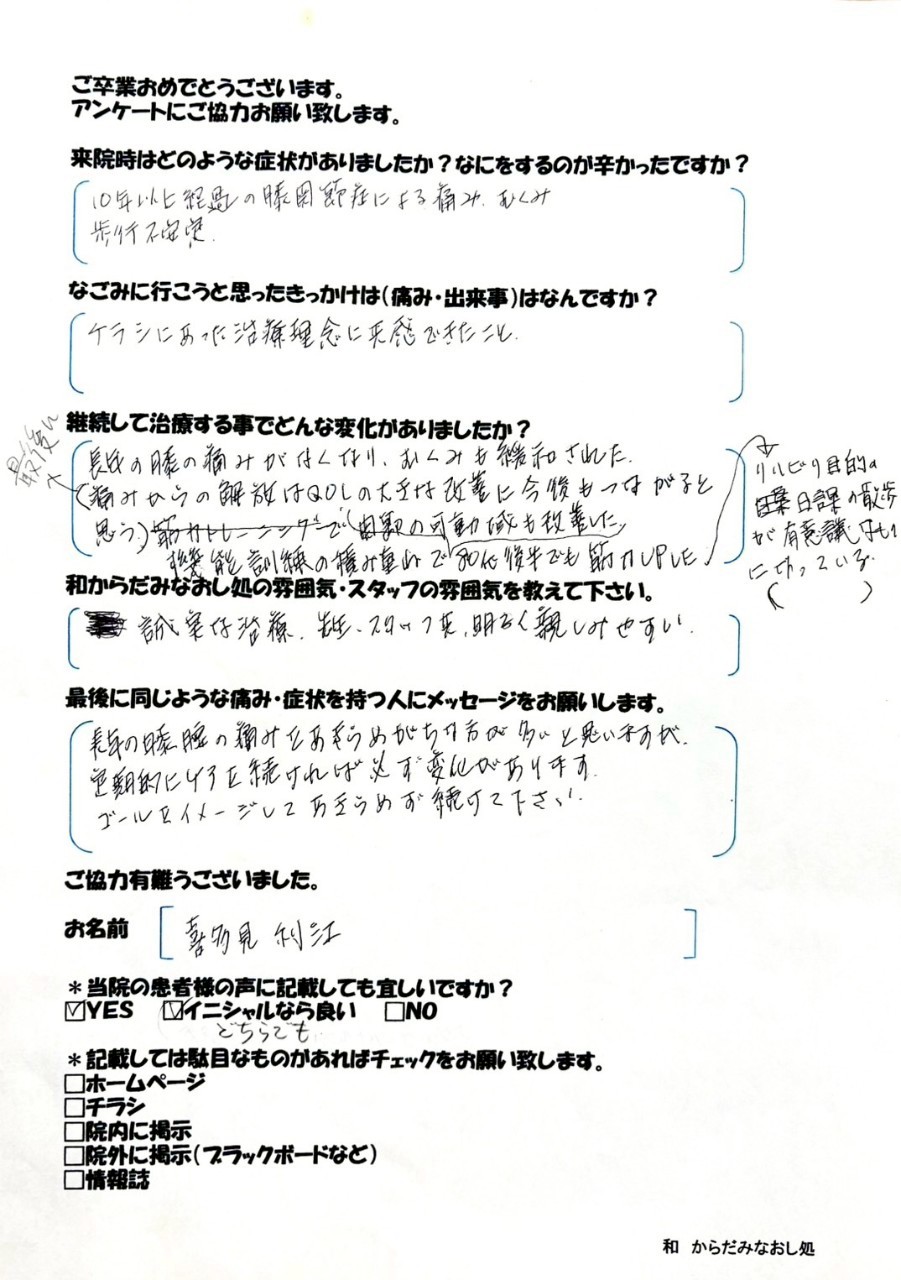 ご卒業おめでとうございます。
アンケートにご協力お願い致します。
来院時はどのような症状がありましたか？なにをするのが辛かったですか？
10年以上経過の膝関節症による痛み、むくみ
歩行不安定
なごみに行こうと思ったきっかけは（痛み・出来事）はなんですか？
チラシにあった治療理念に共感できたこと.
継続して治療する事でどんな変化がありましたか？
最後に
長年の膝の痛みがなくなり、むくみも緩和された.
（痛みからの解放はQOLの大きな改善に今後もつながると
思う）筋力トレーニングで 可動域も改善した
機能訓練の積み重ねで80代後半でも筋力UPした
リハビリ目的の
日課の散歩
が有意識
に
和からだみなおし処の雰囲気・スタッフの雰囲気を教えて下さい。
誠実な治療、先生、スタッフ共、明るく親しみやすい.
最後に同じような痛み・症状を持つ人にメッセージをお願いします。
長年の膝 の痛みをあきらめがちな方が多いと思いますが、
定期的に を続ければ必ず変化があります.
ゴールをイメージしてあきらめず続けて下さい.
ご協力有難うございました。
お名前 喜多見 利江
＊当院の患者様の声に記載しても宜しいですか？
☑YES ☑イニシャルなら良い □NO
どちらでも
＊記載しては駄目なものがあればチェックをお願い致します。
□ホームページ
□チラシ
□院内に掲示
□院外に掲示（ブラックボードなど）
□情報誌
和 からだみなおし処